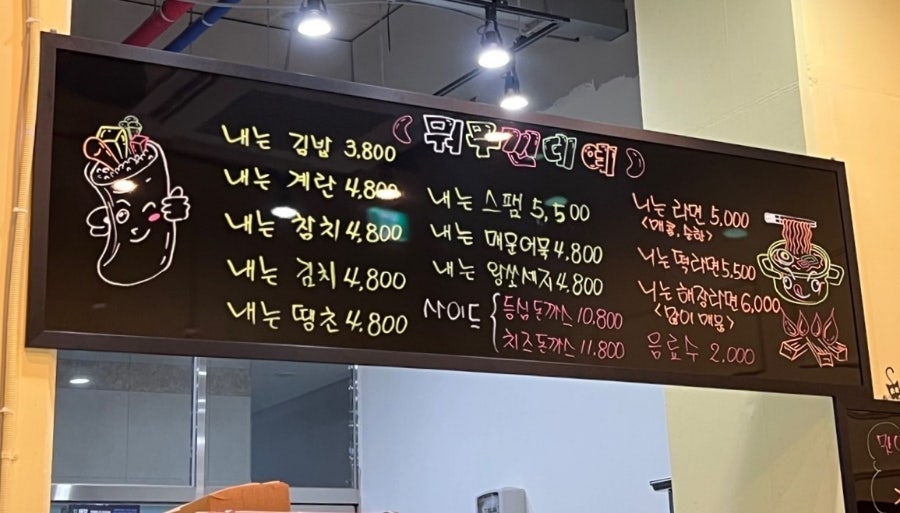 뭐무ㄴ데예
내는 김밥 3,800
내는 계란 4,800
내는 참치 4,800
내는 김치 4,800
내는 땡초 4.800
내는 스팸 5,500
내는 매운어묵 4,800
내는 왕쏘세지 4,800
사이드
등심돈까스 10.800
치즈돈까스 11.800
니는 라면 5,000
<매콤, 순한>
니는 떡라면 5,500
니는 해장라면 6,000
<많이 매움>
음료수 2.000